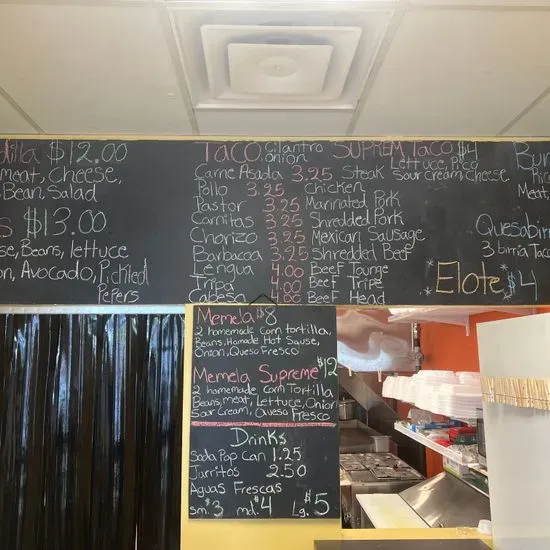 dilla $12.00
meat, Cheese,
Bean, Salad
s $13.00
se, Beans, lettuce
on, Avocado, Pickled
Pepers
Taco Cilantro
onion
Carne Asada 3.25 Steak
Pollo 3.25 Chicken
Pastor 3.25 Marinated Pork
Carnitas 3.25 Shredded Pork
Chorizo 3.25 Mexican Sausage
Barbacoa 3.25 Shredded Beef
Lengua 4.00 Beef Tounge
Tripa 4.00 Beef Tripe
Cabesa 4.00 Beef Head
Suprem Taco $4
Lettuce, Pico
Sour cream, Cheese
Bur
Pic
Meat,
Quesabirr
3 birria Taco
*Elote* $4
Memela $8
2 homemade Corn tortilla,
Beans, Homade Hot Sause,
Onion, Queso Fresco
Memela Supreme $12
2 homemade Corn Tortilla
Beans, meat, Lettuce, Onion
Sour Cream, Queso Fresco
Drinks
Soda Pop Can 1.25
Jarritos 2.50
Aguas Frescas
sm. $3 md. $4 Lg. $5